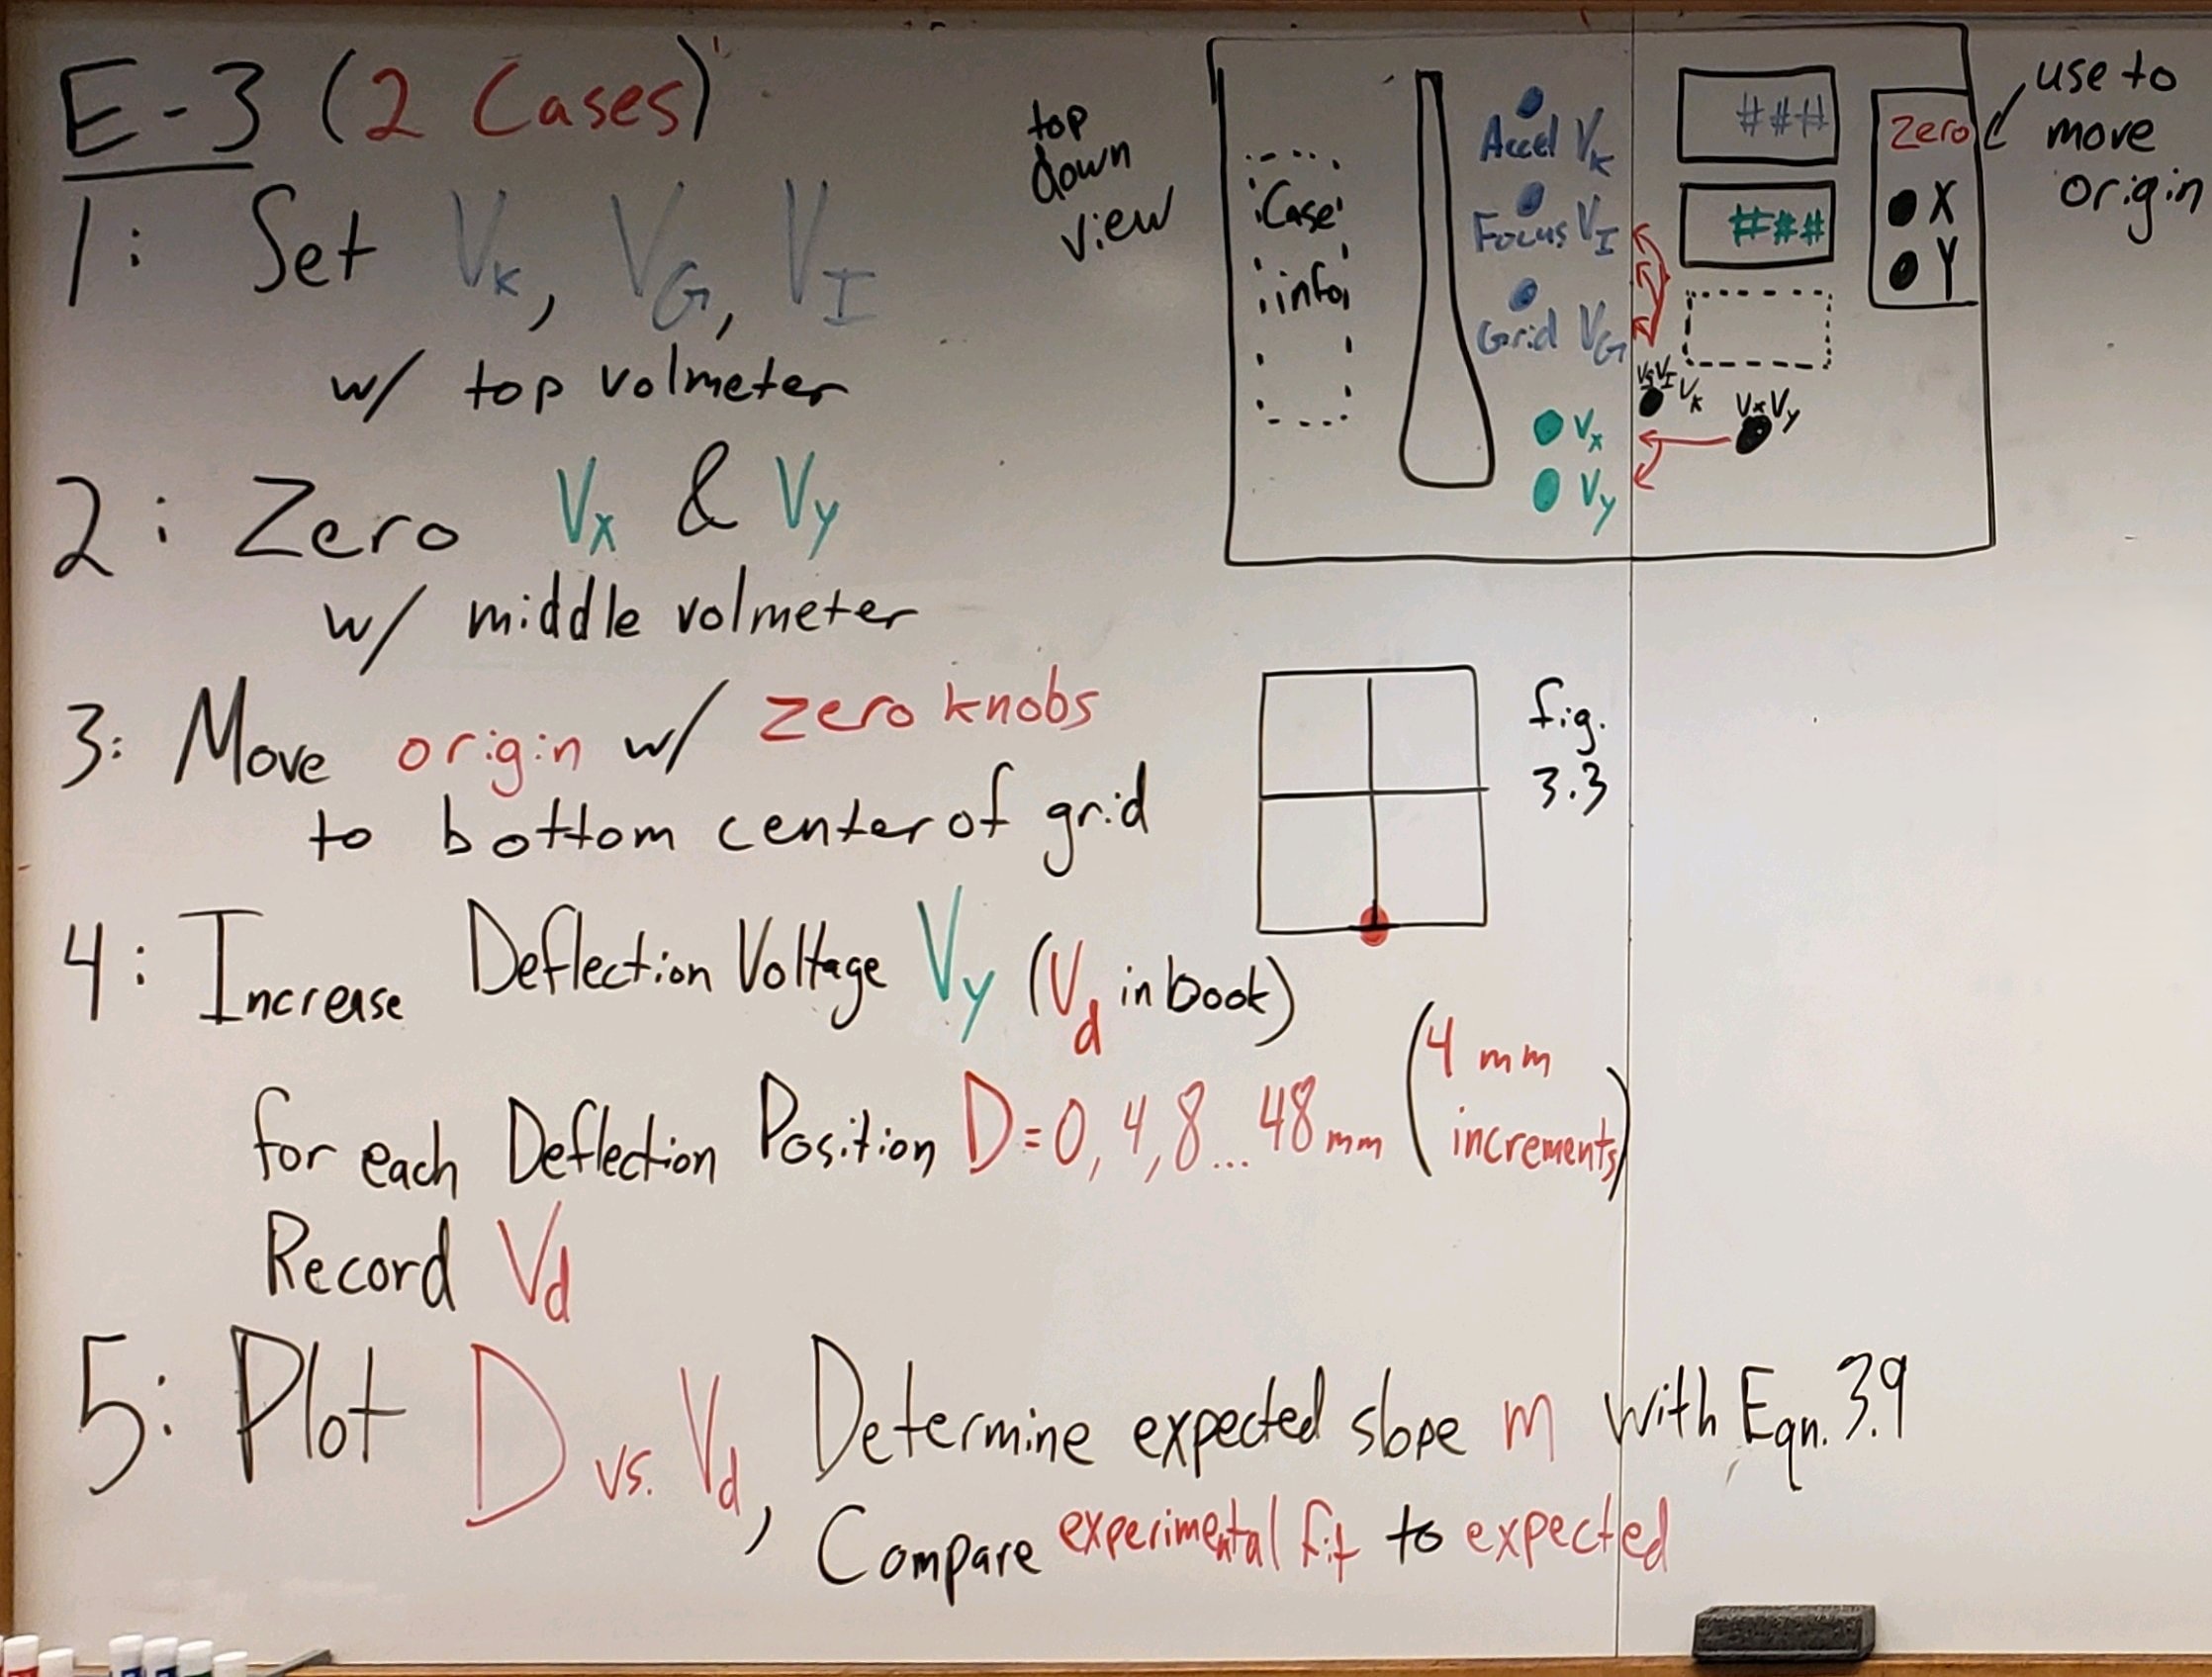 E-3 (2 Cases)
1: Set VK, VG, VI
w/ top volmeter
2: Zero Vx & Vy
w/ middle volmeter
3: Move origin w/ zero knobs
to bottom center of grid
4: Increase Deflection Voltage Vy (Vd in book)
for each Deflection Position D=0, 4, 8... 48mm (4 mm
increments)
Record Vd
5: Plot D vs. Vd, Determine expected slope m with Eqn. 3.9
Compare experimental fit to expected
top
down
view
Case
info
Accel VK
Focus VI
Grid VG
Vx
Vy
###
###
VG VI
VK
Vx Vy
Zero
X
Y
use to
move
origin
fig.
3.3